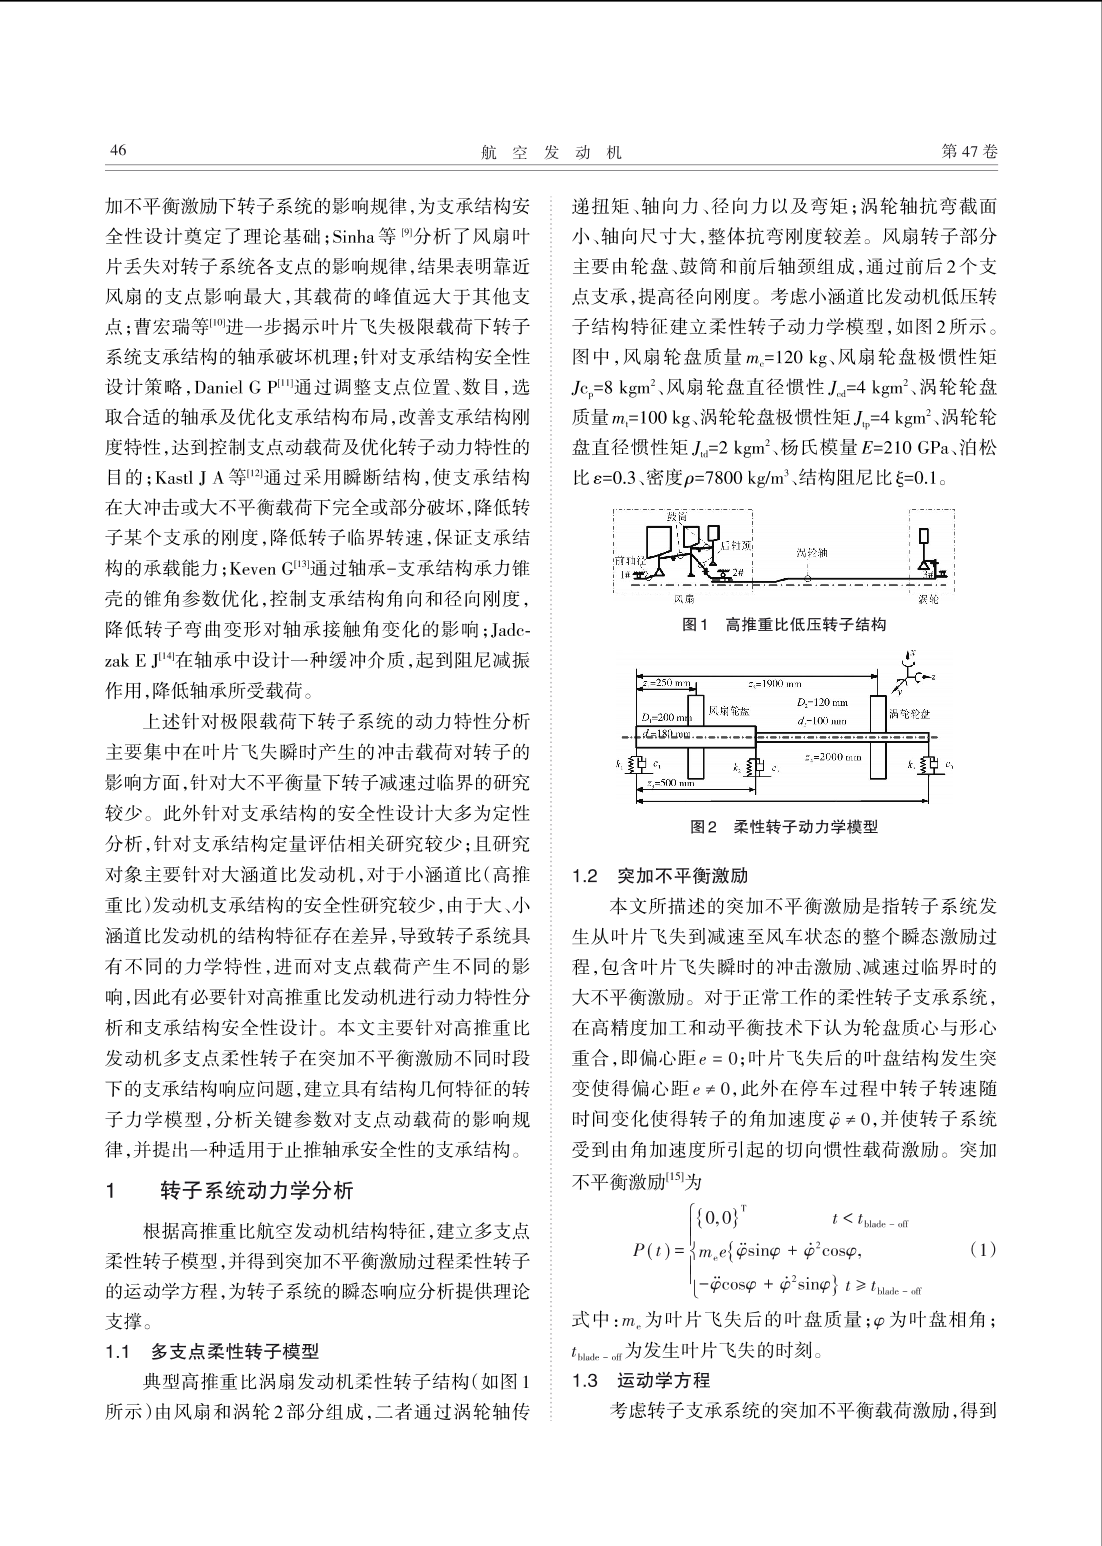 46
航 空 发 动 机
第 47 卷
加不平衡激励下转子系统的影响规律,为支承结构安
全性设计奠定了理论基础;Sinha 等 [9]分析了风扇叶
片丢失对转子系统各支点的影响规律,结果表明靠近
风扇的支点影响最大,其载荷的峰值远大于其他支
点;曹宏瑞等[10]进一步揭示叶片飞失极限载荷下转子
系统支承结构的轴承破坏机理;针对支承结构安全性
设计策略,Daniel G P[11]通过调整支点位置、数目,选
取合适的轴承及优化支承结构布局,改善支承结构刚
度特性,达到控制支点动载荷及优化转子动力特性的
目的;Kastl J A 等[12]通过采用瞬断结构,使支承结构
在大冲击或大不平衡载荷下完全或部分破坏,降低转
子某个支承的刚度,降低转子临界转速,保证支承结
构的承载能力;Keven G[13]通过轴承-支承结构承力锥
壳的锥角参数优化,控制支承结构角向和径向刚度,
降低转子弯曲变形对轴承接触角变化的影响;Jadc-
zak E J[14]在轴承中设计一种缓冲介质,起到阻尼减振
作用,降低轴承所受载荷。
上述针对极限载荷下转子系统的动力特性分析
主要集中在叶片飞失瞬时产生的冲击载荷对转子的
影响方面,针对大不平衡量下转子减速过临界的研究
较少。此外针对支承结构的安全性设计大多为定性
分析,针对支承结构定量评估相关研究较少;且研究
对象主要针对大涵道比发动机,对于小涵道比(高推
重比)发动机支承结构的安全性研究较少,由于大、小
涵道比发动机的结构特征存在差异,导致转子系统具
有不同的力学特性,进而对支点载荷产生不同的影
响,因此有必要针对高推重比发动机进行动力特性分
析和支承结构安全性设计。本文主要针对高推重比
发动机多支点柔性转子在突加不平衡激励不同时段
下的支承结构响应问题,建立具有结构几何特征的转
子力学模型,分析关键参数对支点动载荷的影响规
律,并提出一种适用于止推轴承安全性的支承结构。
1 转子系统动力学分析
根据高推重比航空发动机结构特征,建立多支点
柔性转子模型,并得到突加不平衡激励过程柔性转子
的运动学方程,为转子系统的瞬态响应分析提供理论
支撑。
1.1 多支点柔性转子模型
典型高推重比涡扇发动机柔性转子结构(如图 1
所示)由风扇和涡轮 2 部分组成,二者通过涡轮轴传
递扭矩、轴向力、径向力以及弯矩;涡轮轴抗弯截面
小、轴向尺寸大,整体抗弯刚度较差。风扇转子部分
主要由轮盘、鼓筒和前后轴颈组成,通过前后 2 个支
点支承,提高径向刚度。考虑小涵道比发动机低压转
子结构特征建立柔性转子动力学模型,如图 2 所示。
图中,风扇轮盘质量 mc=120 kg、风扇轮盘极惯性矩
Jcp=8 kgm²、风扇轮盘直径惯性 Jcd=4 kgm²、涡轮轮盘
质量 mt=100 kg、涡轮轮盘极惯性矩 Jtp=4 kgm²、涡轮轮
盘直径惯性矩 Jtd=2 kgm²、杨氏模量 E=210 GPa、泊松
比 ε=0.3、密度 ρ=7800 kg/m³、结构阻尼比 ξ=0.1。
鼓筒
后轴颈
涡轮轴
前轴颈
1#
2#
3#
风扇
涡轮
图 1 高推重比低压转子结构
x
z
y
z=250 mm
z=1900 mm
D1=200 mm
风扇轮盘
D2=120 mm
涡轮轮盘
d=180 mm
d2=100 mm
z=2000 mm
k1 c1
k2 c2
k3 c3
z=500 mm
图 2 柔性转子动力学模型
1.2 突加不平衡激励
本文所描述的突加不平衡激励是指转子系统发
生从叶片飞失到减速至风车状态的整个瞬态激励过
程,包含叶片飞失瞬时的冲击激励、减速过临界时的
大不平衡激励。对于正常工作的柔性转子支承系统,
在高精度加工和动平衡技术下认为轮盘质心与形心
重合,即偏心距 e = 0;叶片飞失后的叶盘结构发生突
变使得偏心距 e ≠ 0,此外在停车过程中转子转速随
时间变化使得转子的角加速度 φ̈ ≠ 0,并使转子系统
受到由角加速度所引起的切向惯性载荷激励。突加
不平衡激励[15]为
{0,0}ᵀ t < t blade-off
P(t) = { mee{φ̈sinφ + φ̇²cosφ, (1)
-φ̈cosφ + φ̇²sinφ} t ≥ t blade-off
式中:me 为叶片飞失后的叶盘质量;φ 为叶盘相角;
t blade-off 为发生叶片飞失的时刻。
1.3 运动学方程
考虑转子支承系统的突加不平衡载荷激励,得到